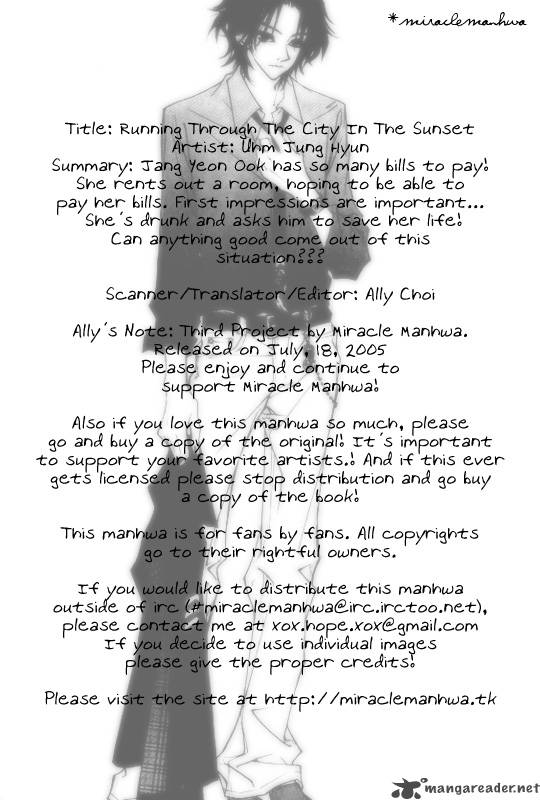 *miraclemanhwa
Title: Running Through The City In The Sunset
Artist: Uhm Jung Hyun
Summary: Jang Yeon Ook has so many bills to pay!
She rents out a room, hoping to be able to
pay her bills. First impressions are important...
She's drunk and asks him to save her life!
Can anything good come out of this
situation???
Scanner/Translator/Editor: Ally Choi
Ally's Note: Third Project by Miracle Manhwa.
Released on July, 18, 2005
Please enjoy and continue to
support Miracle Manhwa!
Also if you love this manhwa so much, please
go and buy a copy of the original! It's important
to support your favorite artists.! And if this ever
gets licensed please stop distribution and go buy
a copy of the book!
This manhwa is for fans by fans. All copyrights
go to their rightful owners.
If you would like to distribute this manhwa
outside of irc (#miraclemanhwa@irc.irctoo.net),
please contact me at xox.hope.xox@gmail.com
If you decide to use individual images
please give the proper credits!
Please visit the site at http://miraclemanhwa.tk
mangareader.net